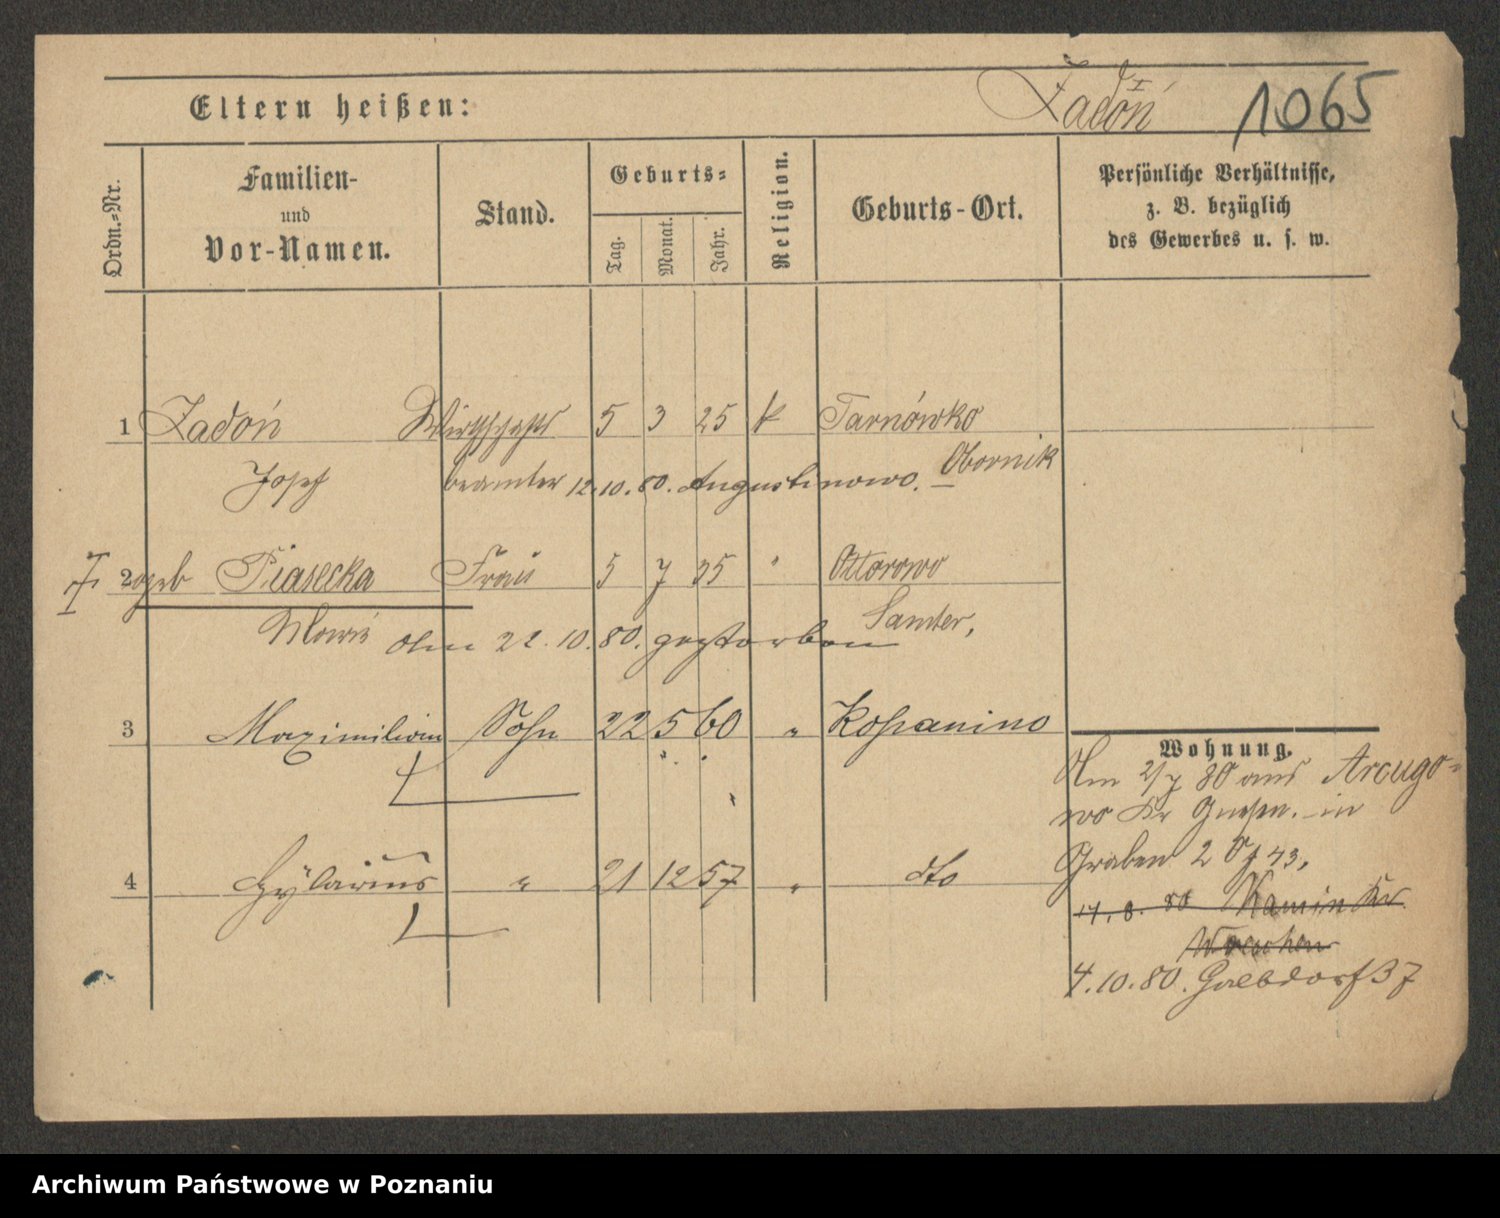 Eltern heißen:
Żadoń
1065
Ordn.-Nr.
Familien-
und
Vor-Namen.
Stand.
Geburts-
Tag.
Monat.
Jahr.
Religion.
Geburts-Ort.
Persönliche Verhältnisse,
z. B. bezüglich
des Gewerbes u. s. w.
1 Żadoń Wirthschafts 5 3 25 k Tarnówko
Josef beamter 12.10.80. Augustinowo. Obornik
2 geb Piasecka Frau 5 7 35 " Ottorowo
Marie am 22.10.80. gestorben Samter,
3 Maximilian Sohn 22 5 60 " Kopanino
4 Hylarius " 21 12 57 " dto
Wohnung.
Am 2/7 80 aus Arcugo-
wo Kr Gnesen. in
Graben 2 bei 43,
17.8.80 Kamin Kr
Wreschen
4.10.80. Grabdorf 37
Archiwum Państwowe w Poznaniu